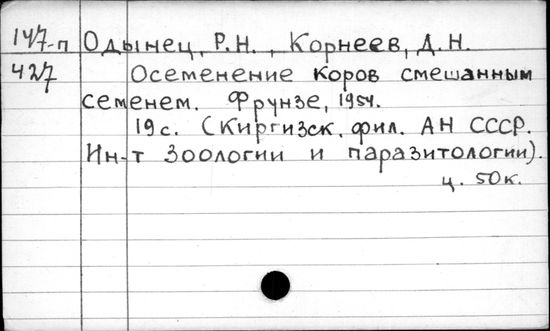 147-п Одынец, Р.Н., Корнеев, Д.Н.
427 Осеменение коров смешанным
семенем. Фрунзе, 1954.
19 с. (Киргизск. фил. АН СССР.
Ин-т зоологии и паразитологии).
ц. 50к.